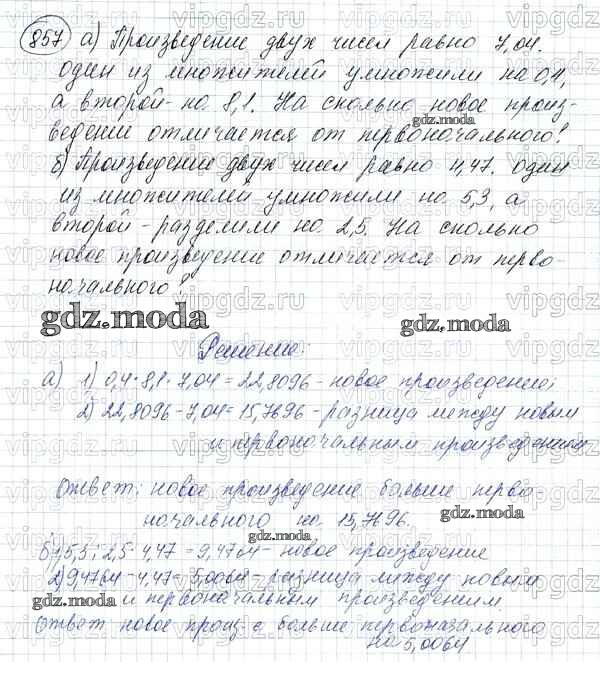 857 а) Произведение двух чисел равно 7,04.
один из множителей умножили на 0,4,
а второй - на 8,1. На сколько новое произ-
ведение отличается от первоначального?
б) Произведение двух чисел равно 4,47. один
из множителей умножили на 5,3, а
второй - разделили на 2,5. На сколько
новое произведение отличается от перво-
начального?
Решение:
а) 1) 0,4 · 8,1 · 7,04 = 22,8096 - новое произведение;
2) 22,8096 - 7,04 = 15,7696 - разница между новым
и первоначальным произведением
Ответ: новое произведение больше перво
начального на 15,7696.
б) 1) 5,3 : 2,5 · 4,47 = 9,4764 - новое произведение
2) 9,4764 - 4,47 = 5,0064 - разница между новым
и первоначальным произведением.
Ответ новое произ-е больше первоначального
на 5,0064
gdz.moda
gdz.moda
gdz.moda
gdz.moda
gdz.moda
gdz.moda
vipgdz.ru